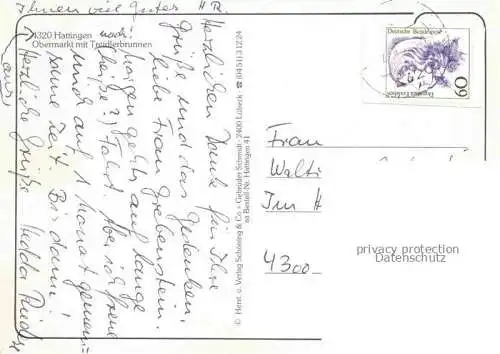 Ihnen viel Gutes H R.
4320 Hattingen
Obermarkt mit Treidlerbrunnen
Herzlichen Dank für Ihre
Grüße und das Gedenken,
liebe Frau Grebenstein.
Morgen geht's auf lange
(noch: heiße?) Fahrt. Aber ich freue
mich auf 1 Monat gemein-
same Zeit. Bis dann!
Herzliche Grüße Hedda
© Herst. u. Verlag Schöning & Co + Gebrüder Schmidt · 2400 Lübeck ☎ (0451) 31224
Bestell-Nr. Hattingen 41
Deutsche Bundespost
60
Frau
Walt
Im H
4300
privacy protection
Datenschutz